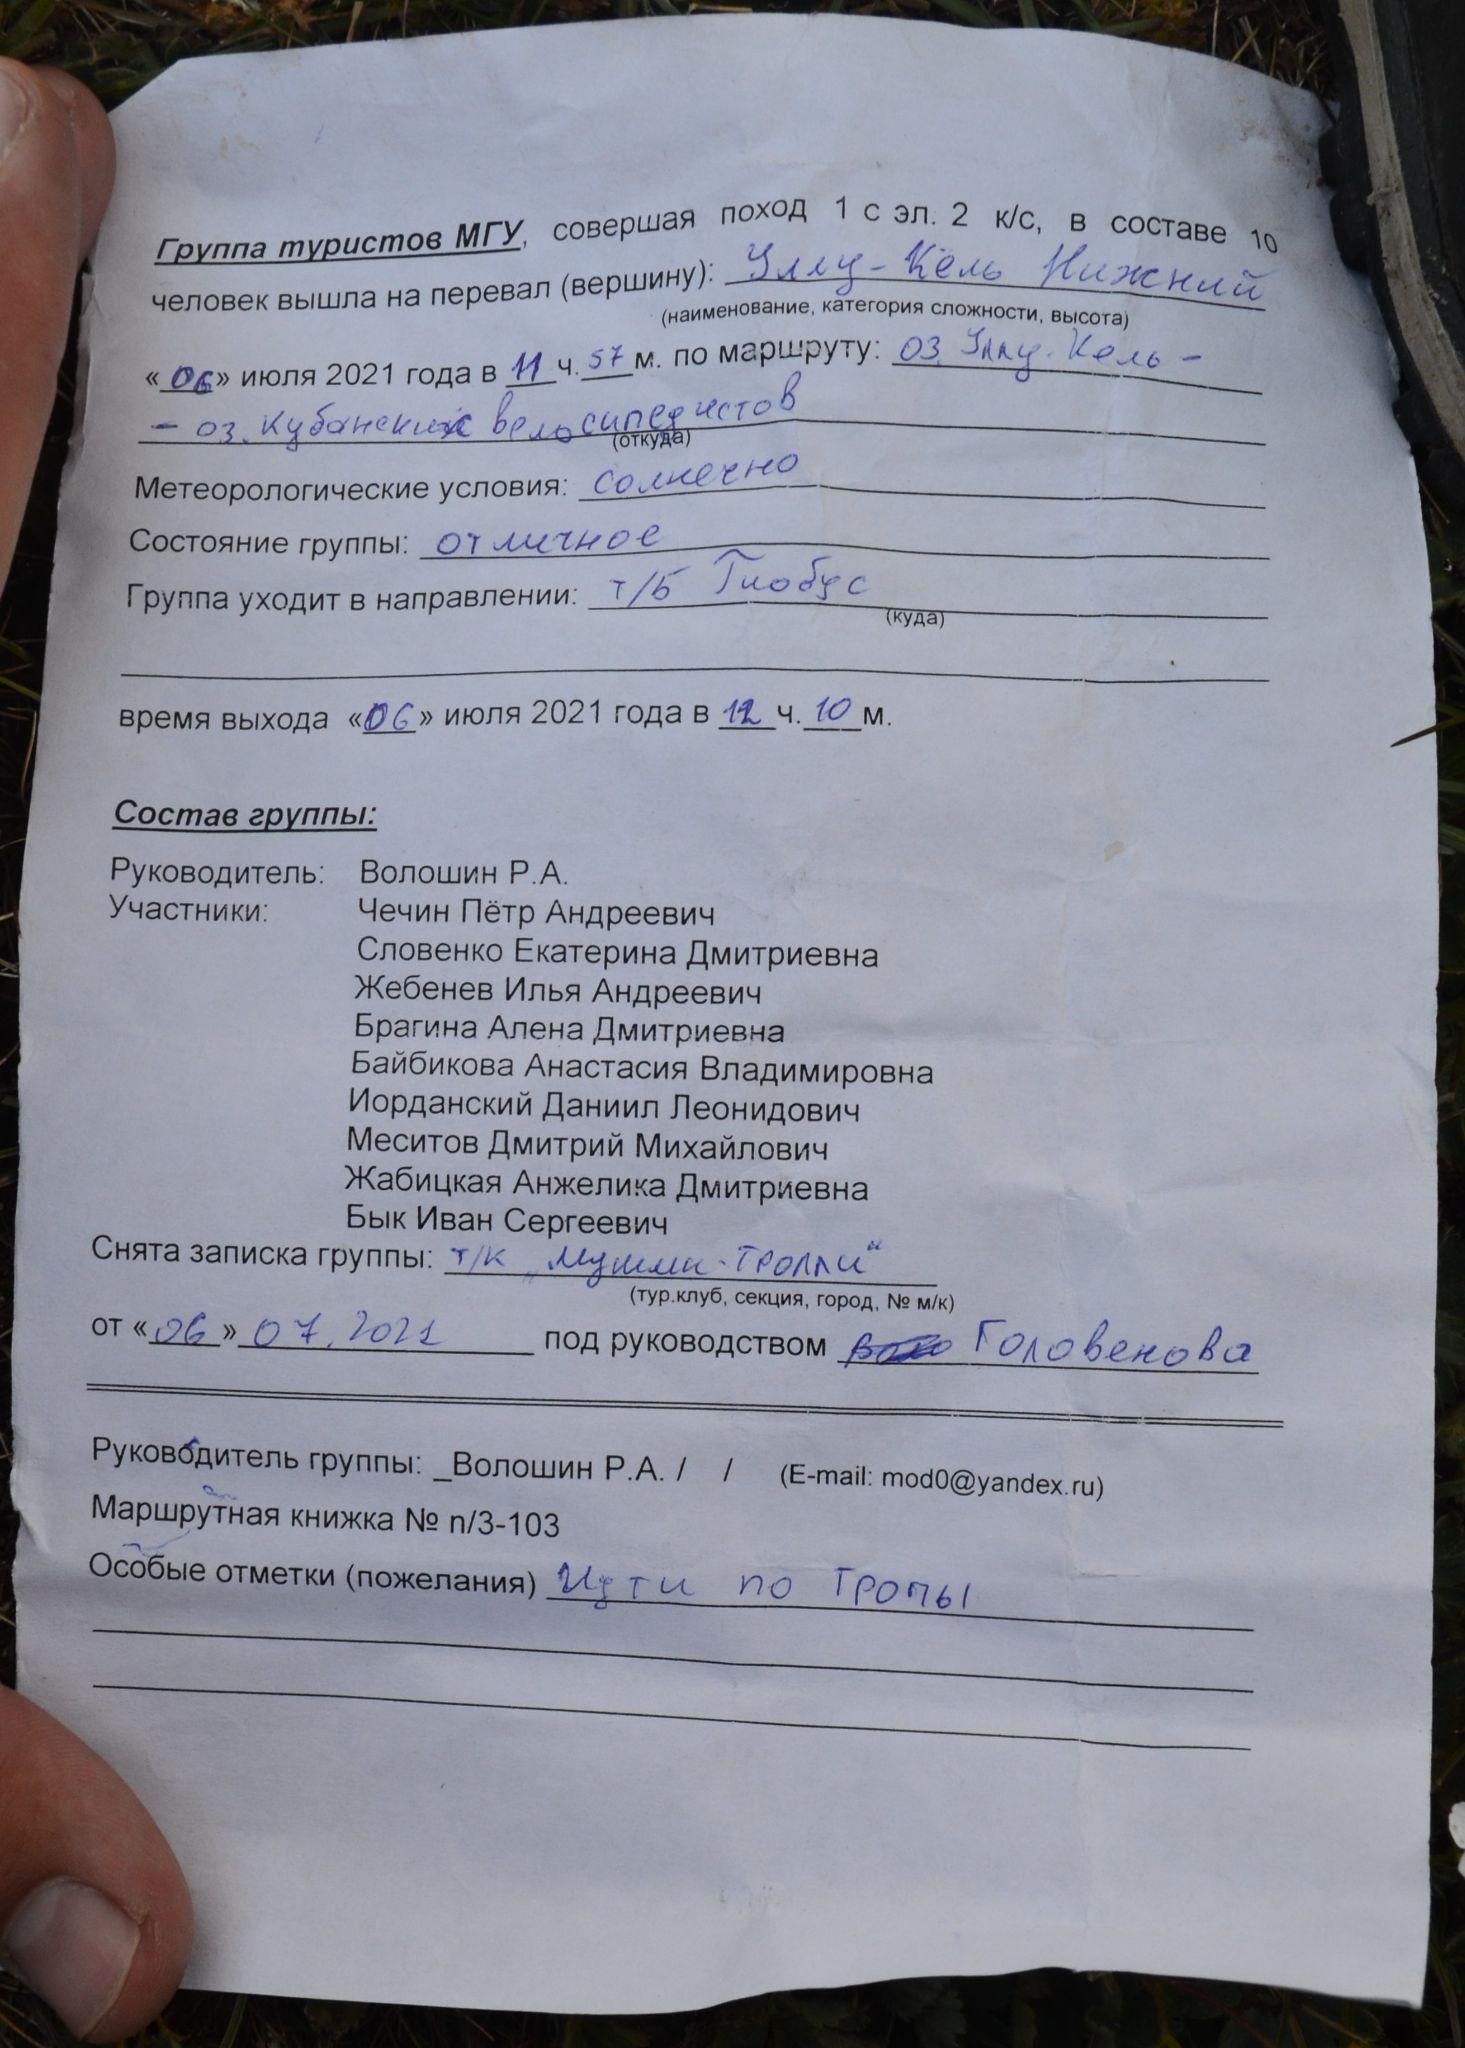 Группа туристов МГУ, совершая поход 1 с эл. 2 к/с, в составе 10
человек вышла на перевал (вершину): Уллу-Кёль Нижний
(наименование, категория сложности, высота)
«06» июля 2021 года в 11 ч. 57 м. по маршруту: оз. Уллу-Кель -
- оз. Кубанских велосипедистов
(откуда)
Метеорологические условия: солнечно
Состояние группы: отличное
Группа уходит в направлении: т/б Глобус
(куда)
время выхода «06» июля 2021 года в 12 ч. 10 м.
Состав группы:
Руководитель: Волошин Р.А.
Участники: Чечин Пётр Андреевич
Словенко Екатерина Дмитриевна
Жебенев Илья Андреевич
Брагина Алена Дмитриевна
Байбикова Анастасия Владимировна
Иорданский Даниил Леонидович
Меситов Дмитрий Михайлович
Жабицкая Анжелика Дмитриевна
Бык Иван Сергеевич
Снята записка группы: т/к „Мумми-Тролли"
(тур.клуб, секция, город, № м/к)
от «06» 07.2021 под руководством Головенова
Руководитель группы: _Волошин Р.А. / / (E-mail: mod0@yandex.ru)
Маршрутная книжка № n/3-103
Особые отметки (пожелания) Идти по тропы